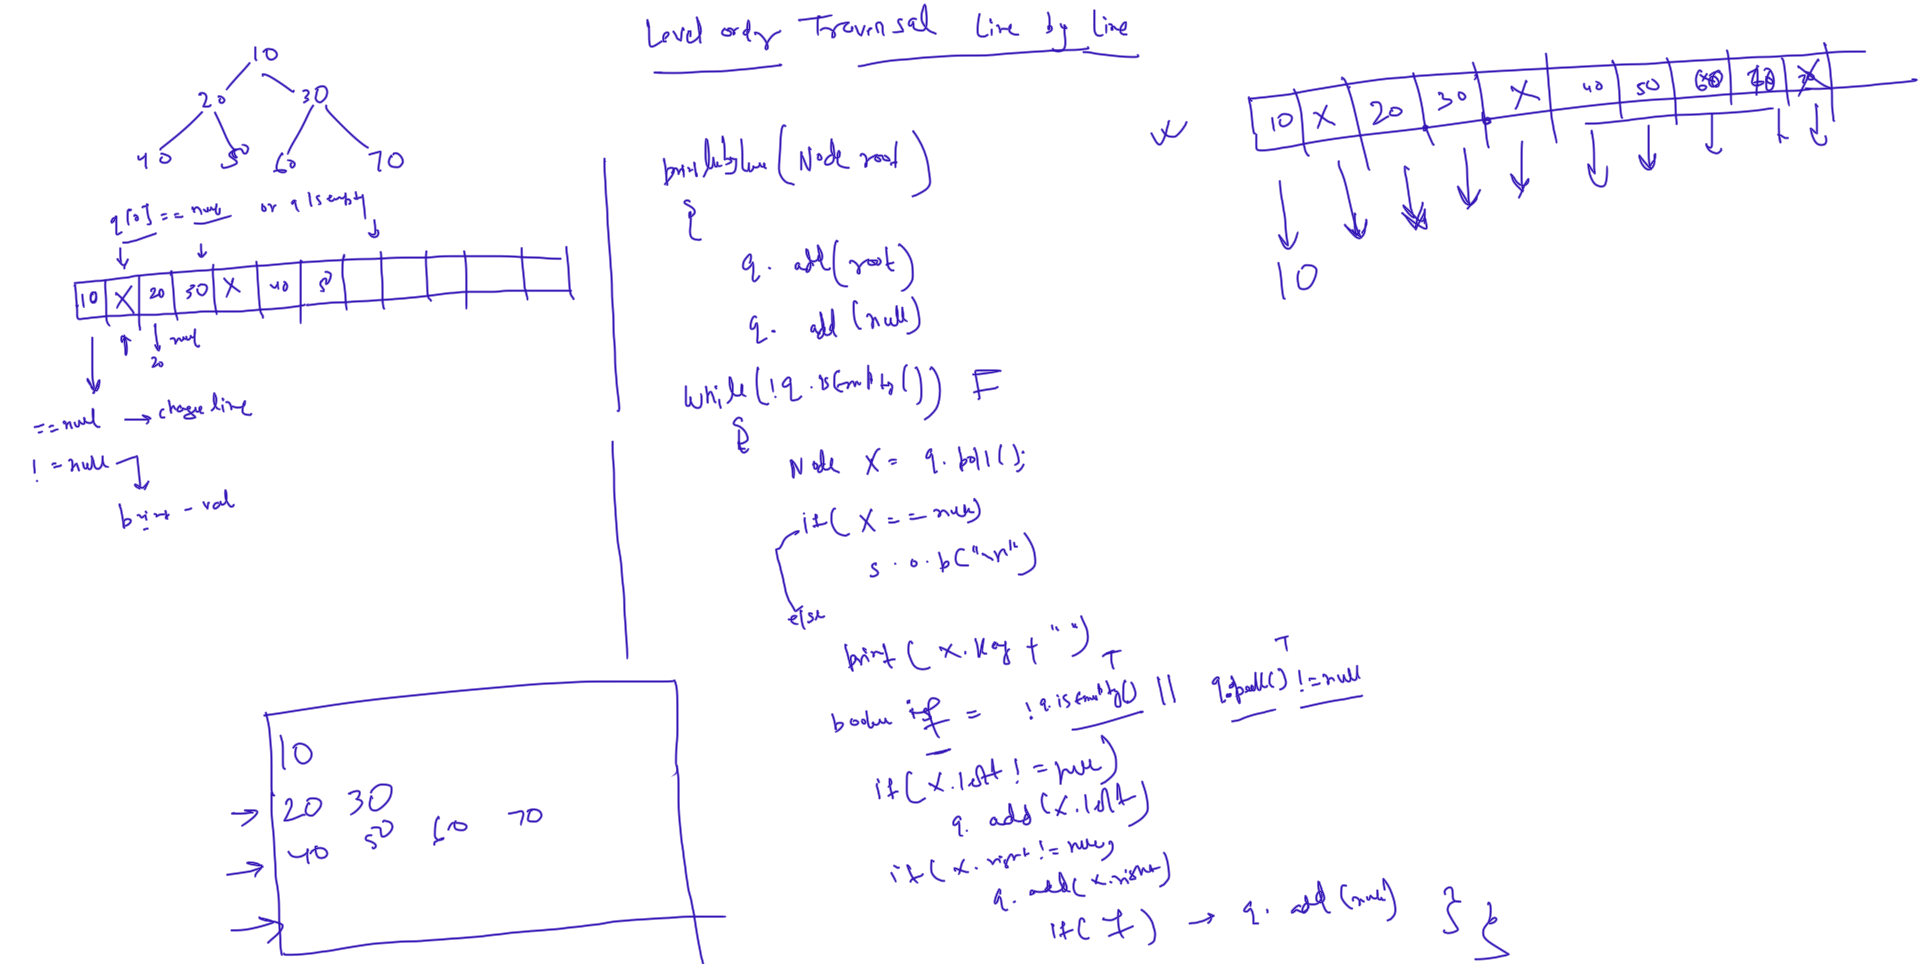 Level order Traversal Line by Line
10
20 30
40 50 60 70
q[0] == null or q isempty
10 X 20 30 X 40 50
null
20
== null → change line
! = null
print - val
10
20 30
40 50 60 70
(Node root)
{
q. add(root)
q. add (null)
while(!q.isEmpty()) F
{
Node X = q.poll();
if( X == null)
s.o.p("\n")
else
print( x.key + " ")
T T
= !q.isEmpty() || q.peek() != null
if( x.left != null)
q. add (x.left)
if( x.right != null)
q. add( x.right)
if( f ) → q. add (null) } }
10 X 20 30 X 40 50 60
10